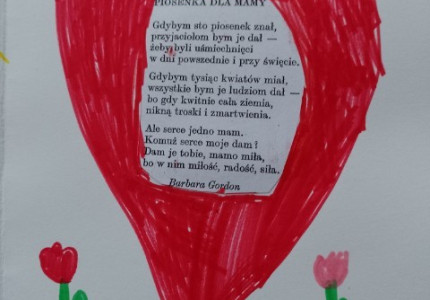 PIOSENKA DLA MAMY
Gdybym sto piosenek znał,
przyjaciołom bym je dał —
żeby byli uśmiechnięci
w dni powszednie i przy święcie.
Gdybym tysiąc kwiatów miał,
wszystkie bym je ludziom dał —
bo gdy kwitnie cała ziemia,
nikną troski i zmartwienia.
Ale serce jedno mam.
Komuż serce moje dam?
Dam je tobie, mamo miła,
bo w nim miłość, radość, siła.
Barbara Gordon